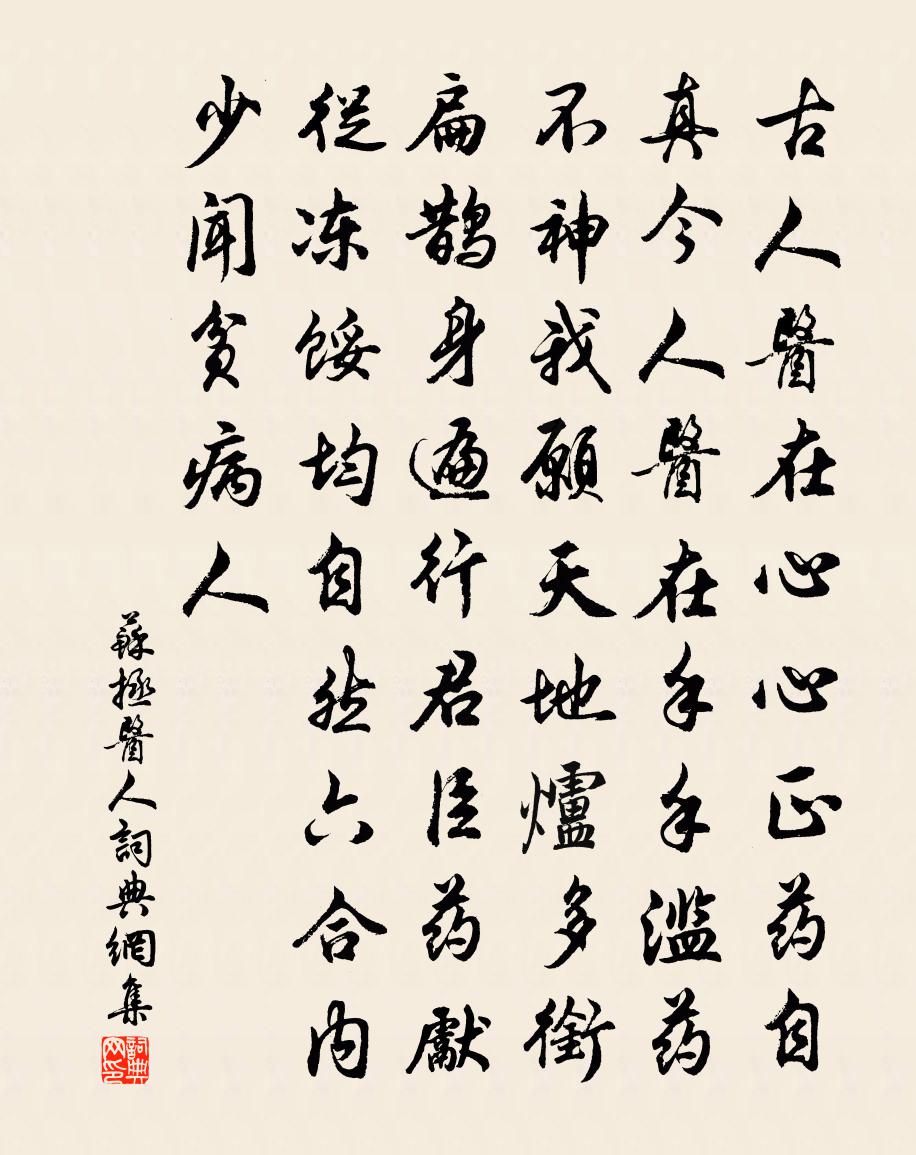 古人醫在心心正药自
真今人醫在手手滥药
不神我願天地爐多銜
扁鹊身遍行君臣药獻
從冻餒均自然六合内
少闻贫病人
蘇拯醫人詞典網集
詞典网印